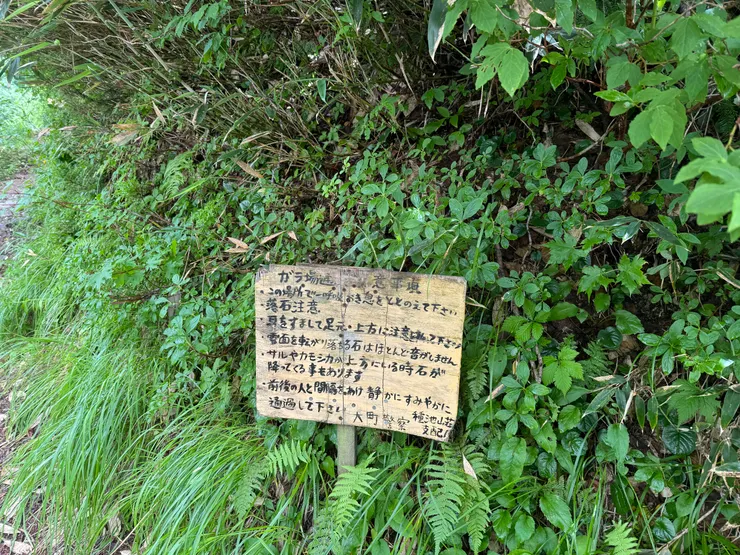 ガラ場通 注意事項
・この場所で一呼吸おき息をととのえて下さい
・落石注意
・耳をすまして足元・上方に注意 下さい
・雪面を転がり落ちる石はほとんど音がしません
・サルやカモシカが上方にいる時石が
降ってくる事をあります
・前後の人と間隔をあけ静かにすみやかに
通過して下さい
大町警察・種池山荘
支配人